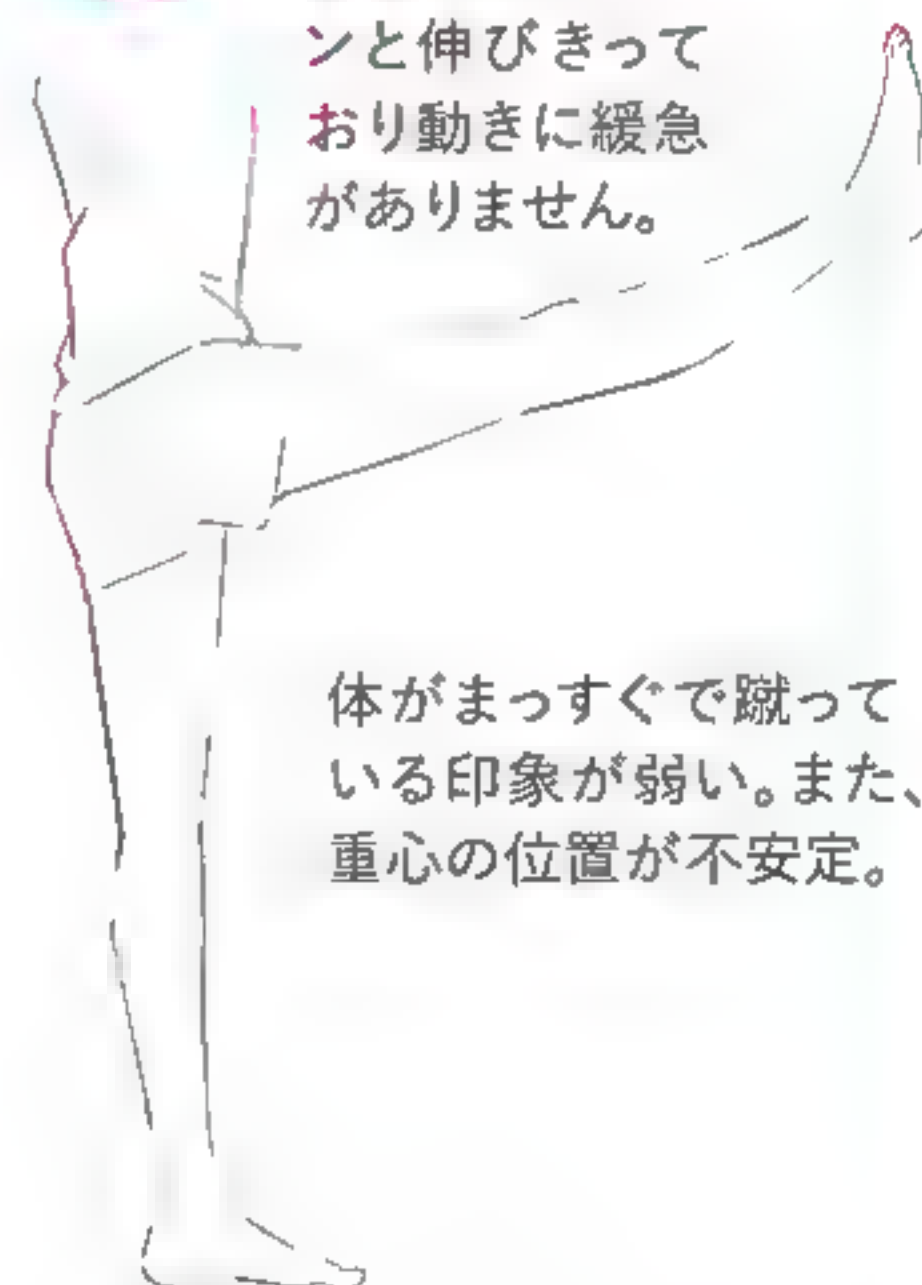 ンと伸びきって
おり動きに緩急
がありません。
体がまっすぐで蹴って
いる印象が弱い。また、
重心の位置が不安定。